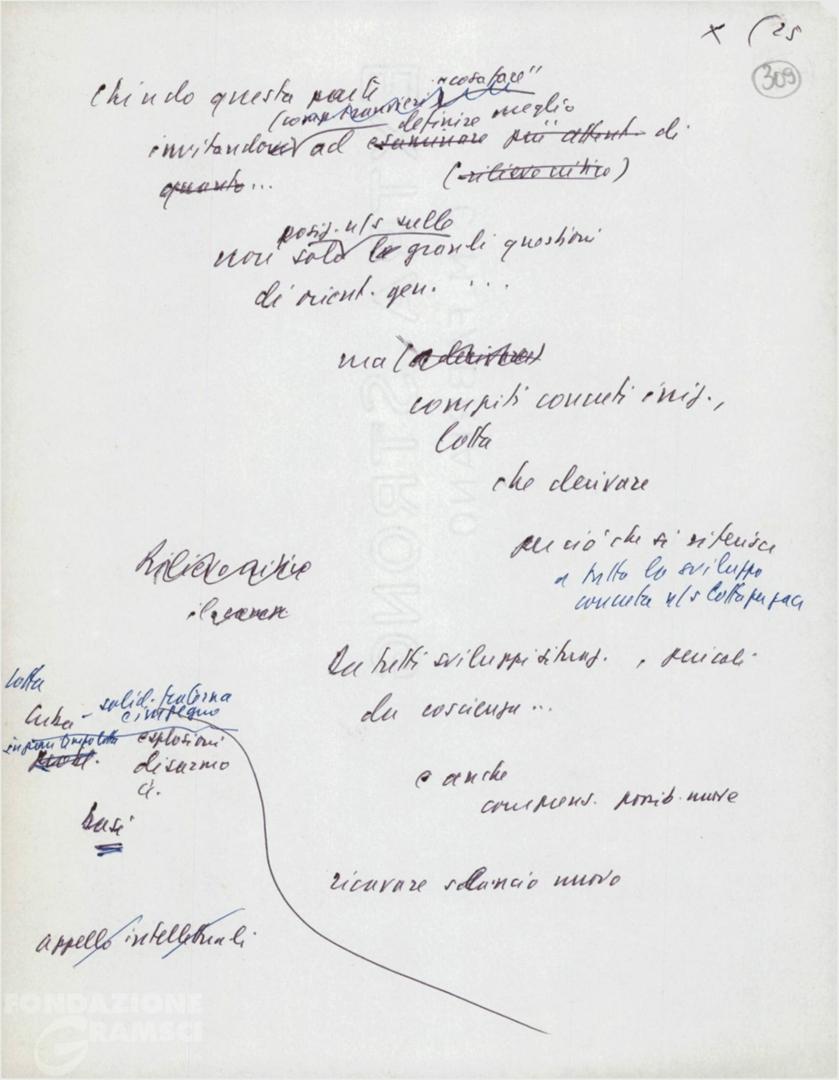 x (25
309
Chiudo questa parte "cosa fare"
definire meglio
invitandovi ad esaminare più attent. di
quanto... (rilievo critico)
posiz. n/s sulle
non solo le grandi questioni
di orient. gen. ...
ma
compiti concreti iniz.,
lotta
che derivare
per ciò che si riferisce
a tutto lo sviluppo
concreto n/s lotta per pace
Rilievo critico
Da tutti sviluppi situaz., pericoli
da coscienza...
e anche
comprens. possib. nuove
ricavare slancio nuovo
lotta
Cuba - solid. fraterna
e impegno
esplosioni
disarmo
Basi
appello intellettuali
FONDAZIONE
GRAMSCI